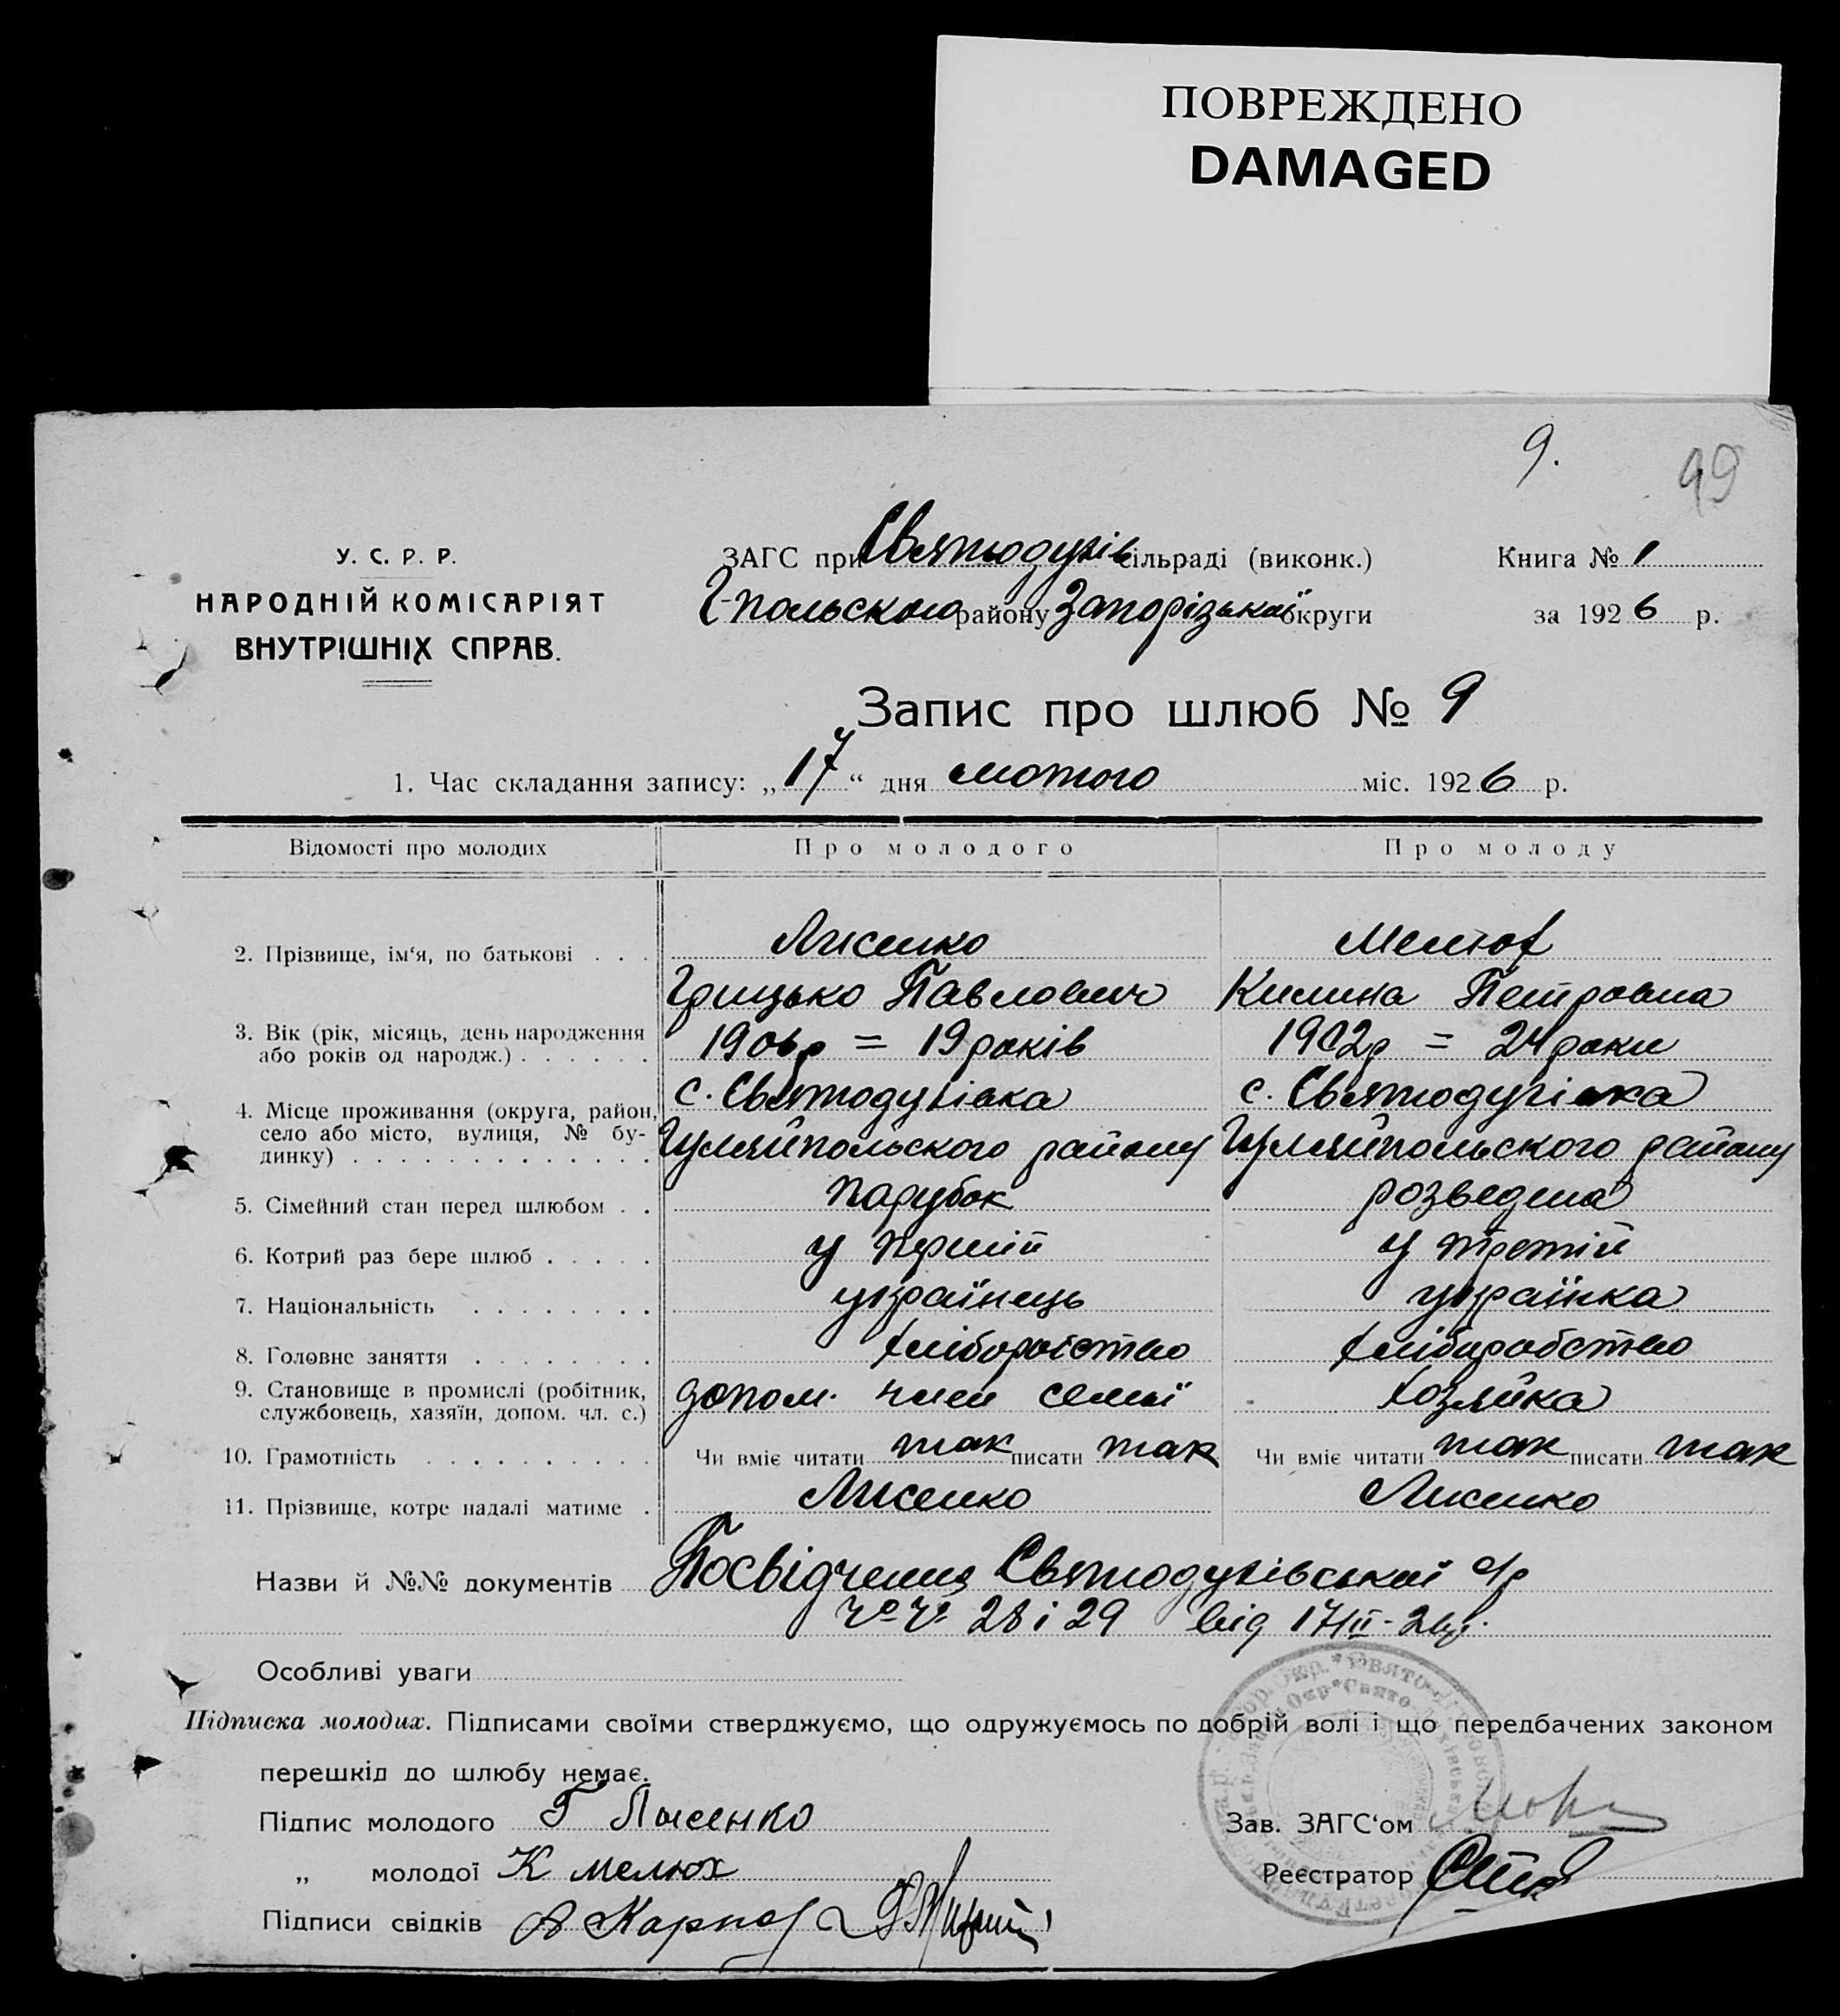 ПОВРЕЖДЕНО
DAMAGED
9.
99
У. С. Р. Р.
НАРОДНІЙ КОМІСАРІЯТ
ВНУТРІШНІХ СПРАВ.
ЗАГС при Святодухів сільраді (виконк.)
Г-польского району Запорізькой округи
Книга № 1
за 1926 р.
Запис про шлюб № 9
1. Час складання запису: „17“ дня лютого міс. 1926 р.
Відомості про молодих Про молодого Про молоду
2. Прізвище, ім‘я, по батькові . . . Лисенко Мелюх
Грицько Павлович Килина Петровна
3. Вік (рік, місяць, день народження
або років од народж.) . . . . . . 1906р = 19 років 1902р = 24 роки
с. Святодухівка с. Святодухівка
4. Місце проживання (округа, район,
село або місто, вулиця, № бу-
динку) . . . . . . . . . . . . . Гуляйпольского району Гуляйпольского району
5. Сімейний стан перед шлюбом . . парубок розведена
6. Котрий раз бере шлюб . . . . . у перший у третій
7. Національність . . . . . . . . українець українка
8. Головне заняття . . . . . . . . хліборобство хліборобство
9. Становище в промислі (робітник,
службовець, хазяїн, допом. чл. с.) допом. член семьї хозяйка
10. Грамотність . . . . . . . . . . Чи вміє читати так писати так Чи вміє читати так писати так
11. Прізвище, котре надалі матиме . Лисенко Лисенко
Назви й №№ документів Посвідчення Святодухівськой с/р
№ № 28 і 29 від 17/II-26р.
Особливі уваги
Підписка молодих. Підписами своїми стверджуємо, що одружуємось по добрій волі і що передбачених законом
перешкід до шлюбу немає.
Підпис молодого Г Лысенко
Зав. ЗАГС‘ом
„ молодої К Мелюх
Реєстратор
Підписи свідків